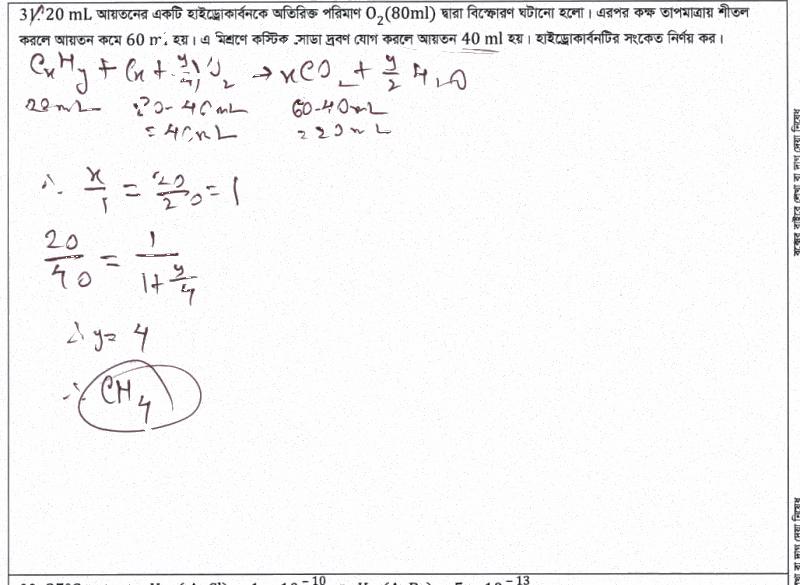 31. 20 mL আয়তনের একটি হাইড্রোকার্বনকে অতিরিক্ত পরিমাণ O₂(80ml) দ্বারা বিস্ফোরণ ঘটানো হলো। এরপর কক্ষ তাপমাত্রায় শীতল
করলে আয়তন কমে 60 m হয়। এ মিশ্রণে কস্টিক সোডা দ্রবণ যোগ করলে আয়তন 40 ml হয়। হাইড্রোকার্বনটির সংকেত নির্ণয় কর।
CxHy + (x + y/4) O₂ → xCO₂ + y/2 H₂O
20mL 80-40mL 60-40mL
= 40mL = 20mL
∴ x/1 = 20/20 = 1
20/40 = 1/(1+y/4)
∴ y = 4
∴ CH₄